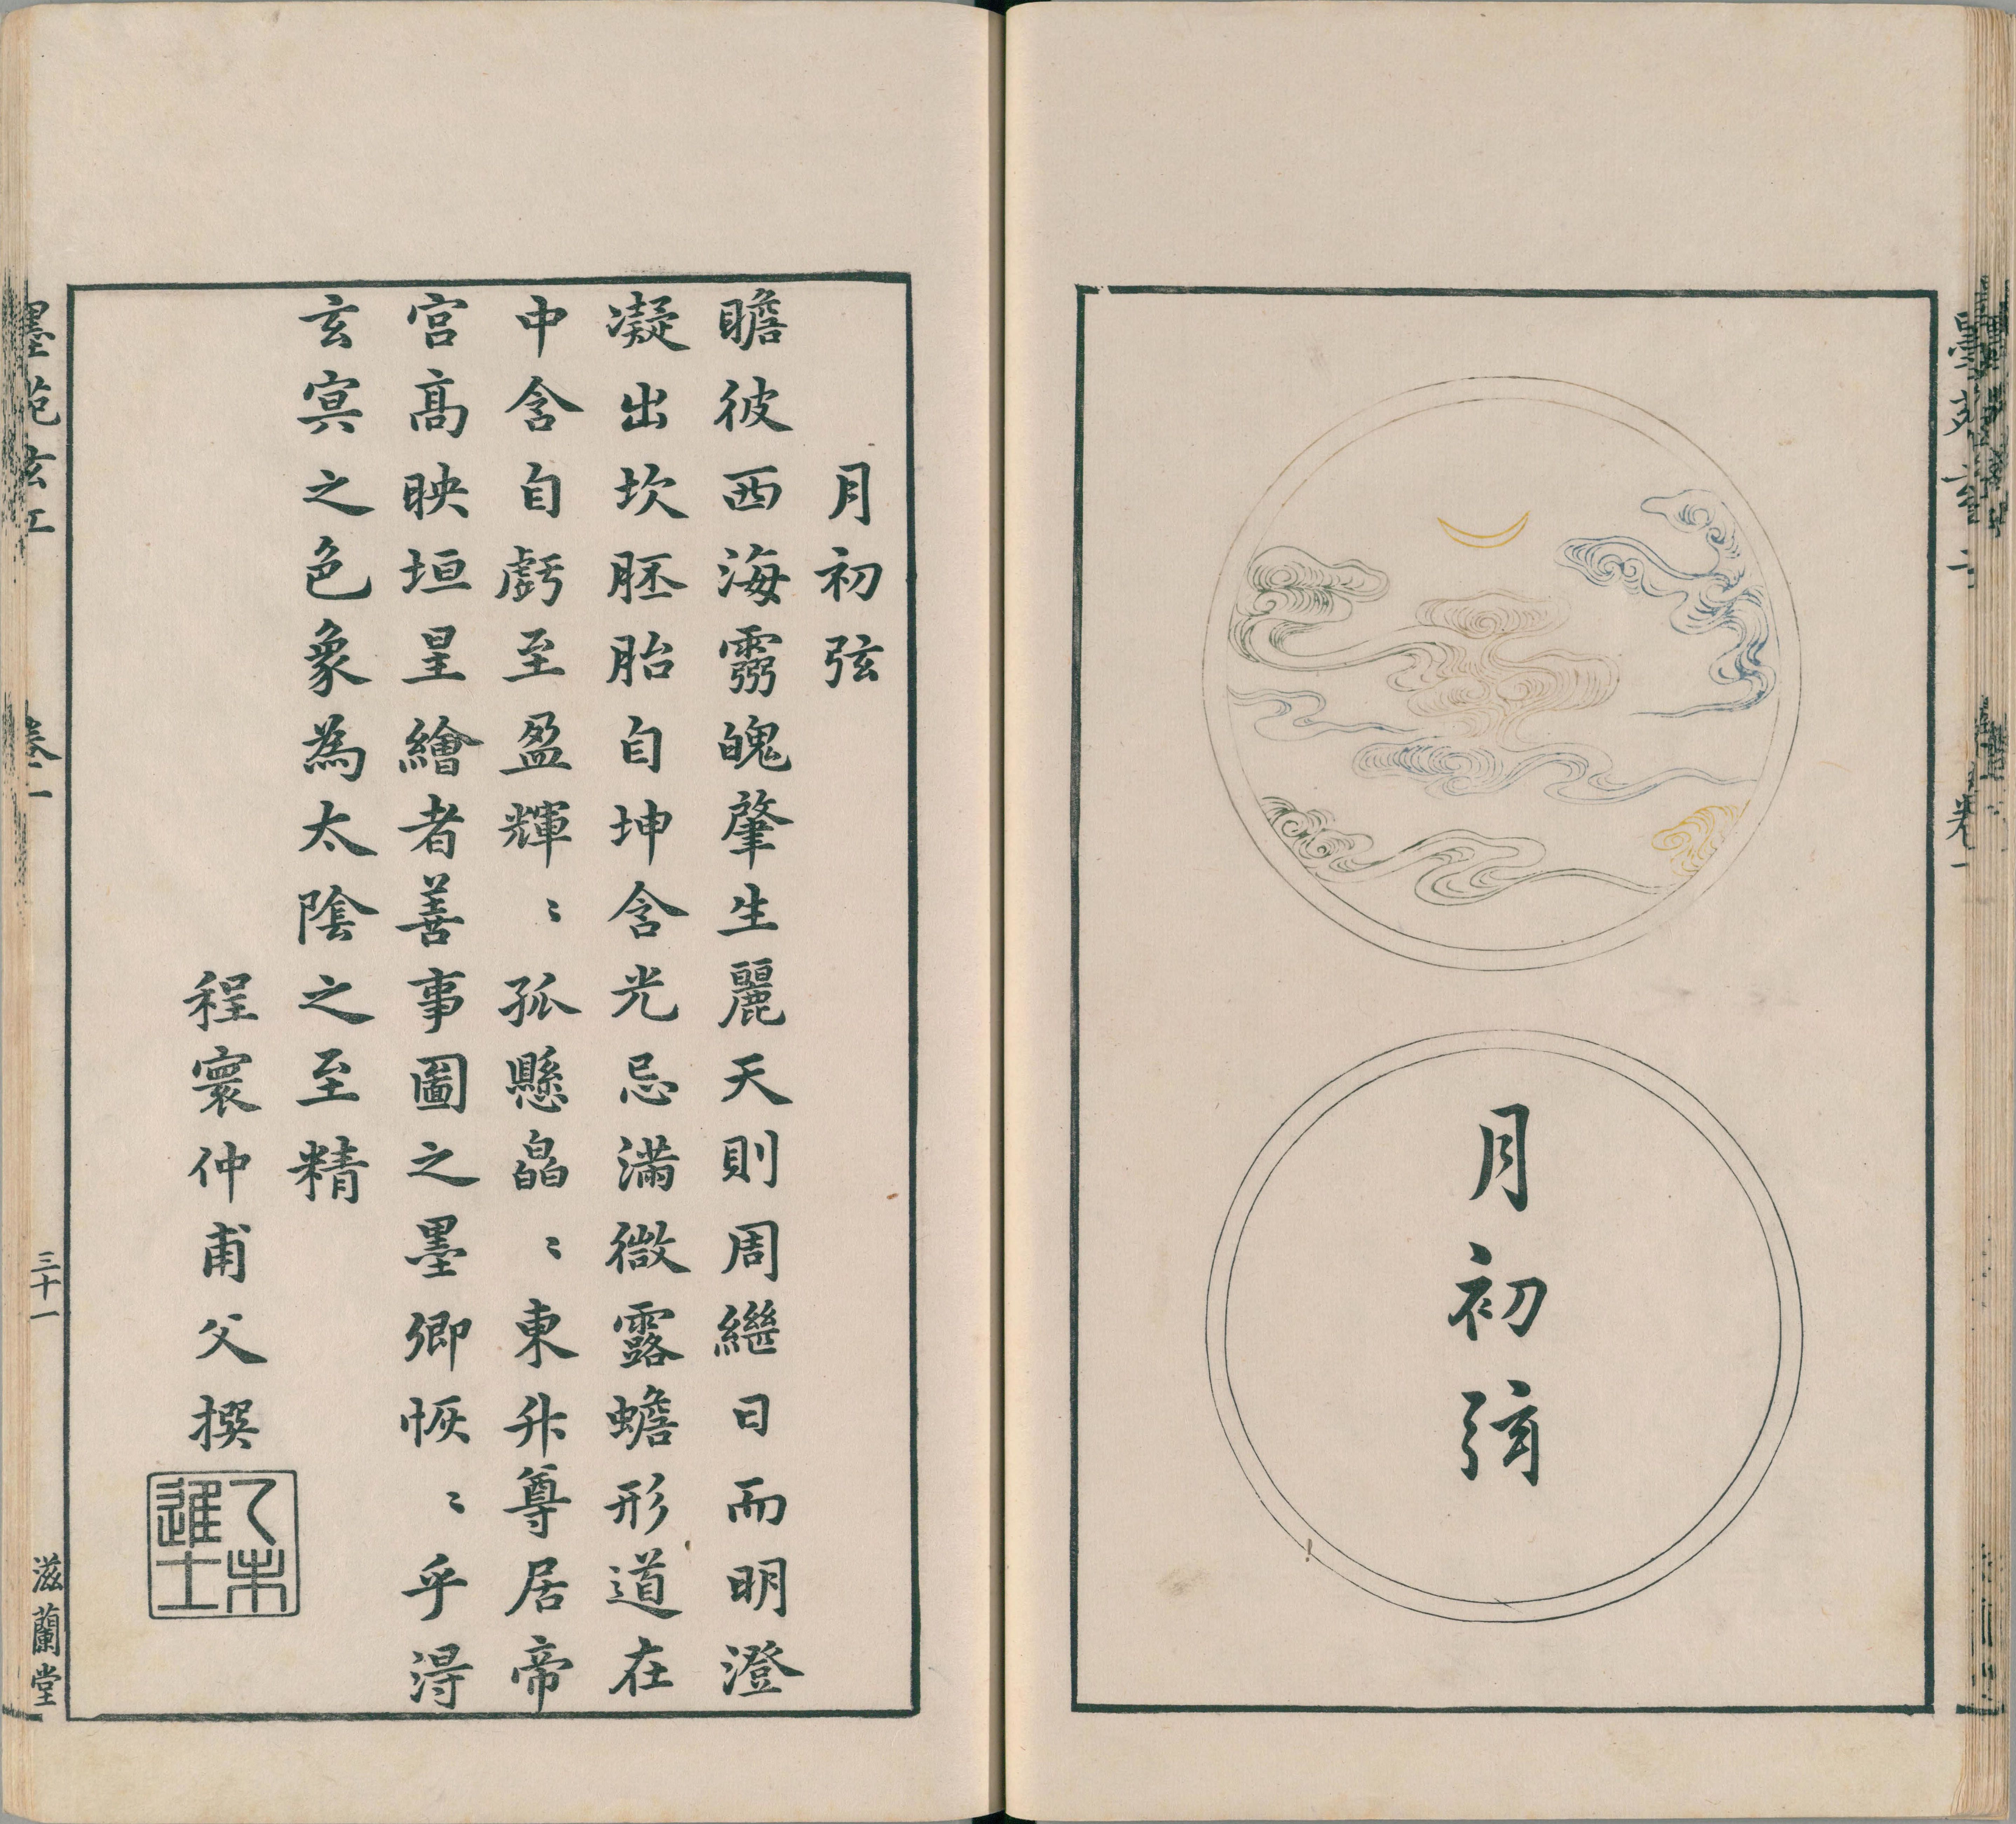 月初弦
月初弦
瞻彼西海霛魄肈生麗天則周繼日而明澄
凝出坎胚胎自坤含光忌滿微露蟾形道在
中含自虧至盈輝〻孤懸皛〻東升尊居帝
宫髙映垣星繪者善事圖之墨卿恢〻乎淂
玄㝠之色象為太陰之至精
程寰仲甫父撰
乙未
進士
卷一
三十一
滋蘭堂